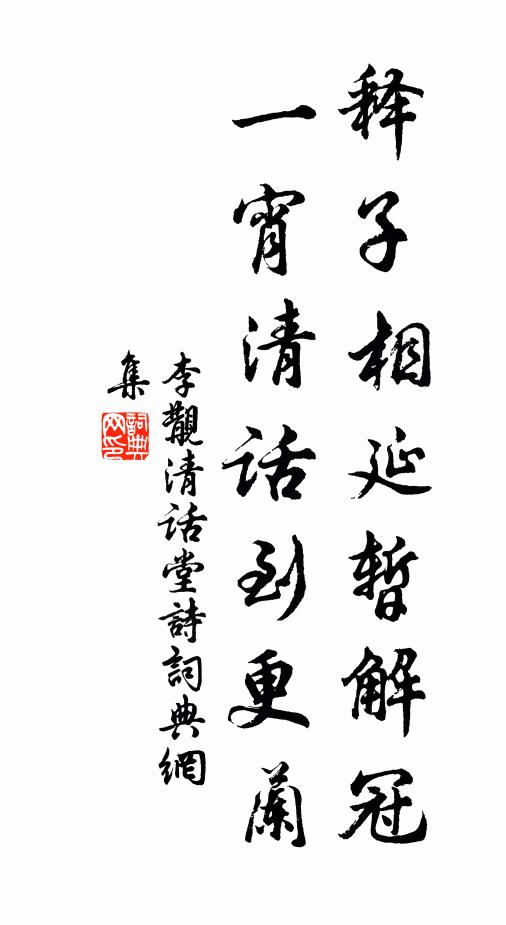 释子相延暂解冠
一宵清话到更阑
李觏清话堂詩詞典網
集
詞典網印